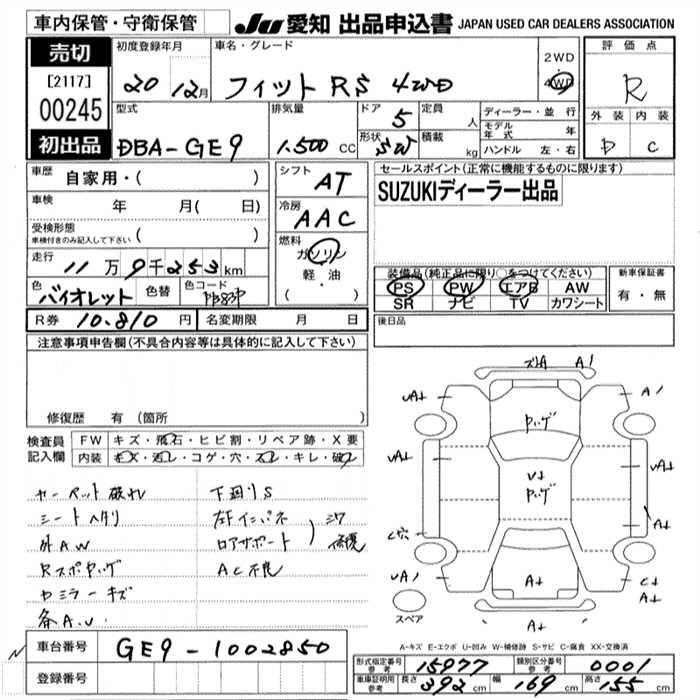 車内保管・守衛保管
JU 愛知 出品申込書 JAPAN USED CAR DEALERS ASSOCIATION
売切
[2117]
00245
初出品
初度登録年月
20 12月
車名・グレード
フィット RS 4WD
2WD
4WD
評価点
R
外装 内装
D C
型式
DBA-GE9
排気量
1.500 CC
ドア
5
形状
SW
定員
人
積載
kg
ディーラー・並行
モデル年式 年
ハンドル 左・右
車歴
自家用・( )
車検
年 月( 日)
受検形態
車検付きのみ記入して下さい ( )
走行
11万9千253km
色
バイオレット
色替
色コード
PB83P
R券 10.810 円
名変期限 月 日
シフト
AT
冷房
AAC
燃料
ガソリン
軽・油
( )
セールスポイント(正常に機能するものに限ります)
SUZUKIディーラー出品
装備品(純正品に限り○をつけてください)
PS PW エアB AW
SR ナビ TV カワシート
新車保証書
有・無
後日品
注意事項申告欄(不具合内容等は具体的に記入して下さい)
修復歴 有(箇所 )
検査員記入欄
FW キズ・飛石・ヒビ割・リペア跡・X要
内装 キズ・汚レ・コゲ・穴・スレ・キレ・破レ
カーペット破レ
シートヘタリ
外AW
Rスポヤケ
ドミラーキズ
下廻りS
左F インパネ
ロアサポート
AC不良
修復
ズレA A1
UA↓ A1
UA↓ UA↓
C穴 A↓
UA1 C↓
A↓
A↓ A↓
U↓
スペア
A-キズ E-エクボ U-凹み W-補修跡 S-サビ C-腐食 XX-交換済
車台番号 GE9-1002850
登録番号
形式指定番号 参考 15977
類別区分番号 参考 0001
車庫証明用 参考 長さ 392 cm 幅 169 cm 高さ 155 cm